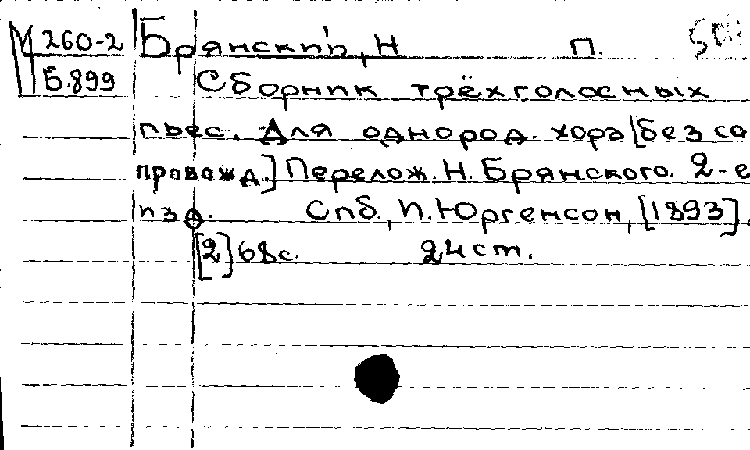 М 260-2 Брянский, Н П.
Б.899 Сборник трёхголосных
пьес. Для однород. хора [без со
провожд.] Перелож. Н. Брянского. 2-е
изд. Спб., П. Юргенсон, [1893].
[2] 68 с. 24 ст.